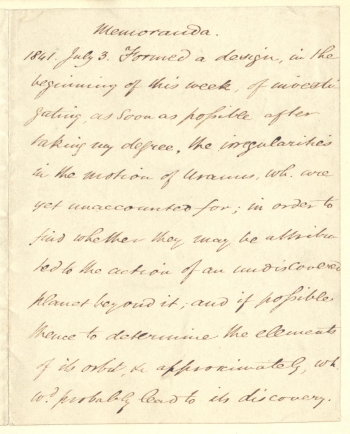 Memoranda.
1841. July 3. Formed a design, in the
beginning of this week, of investi-
gating, as soon as possible after
taking my degree, the irregularities
in the motion of Uranus, wh. are
yet unaccounted for; in order to
find whether they may be attribu-
ted to the action of an undiscovered
planet beyond it; and if possible
thence to determine the elements
of its orbit, &c. approximately, wh.
wd. probably lead to its discovery.